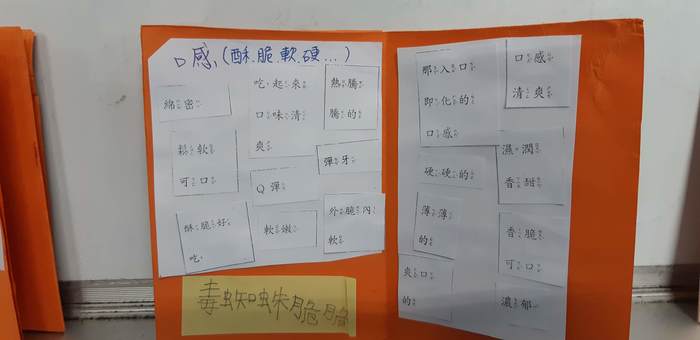 口感(酥.脆.軟.硬...)
綿密
吃起來
口味清
爽
熱騰
騰的
鬆軟
可口
Q彈
彈牙
酥脆好
吃
軟嫩
外脆內
軟
毒蜘蛛脆
那入口
即化的
口感
口感
清爽
硬硬的
濕潤
香甜
薄薄
的
香脆
可口
爽口
的
濃郁